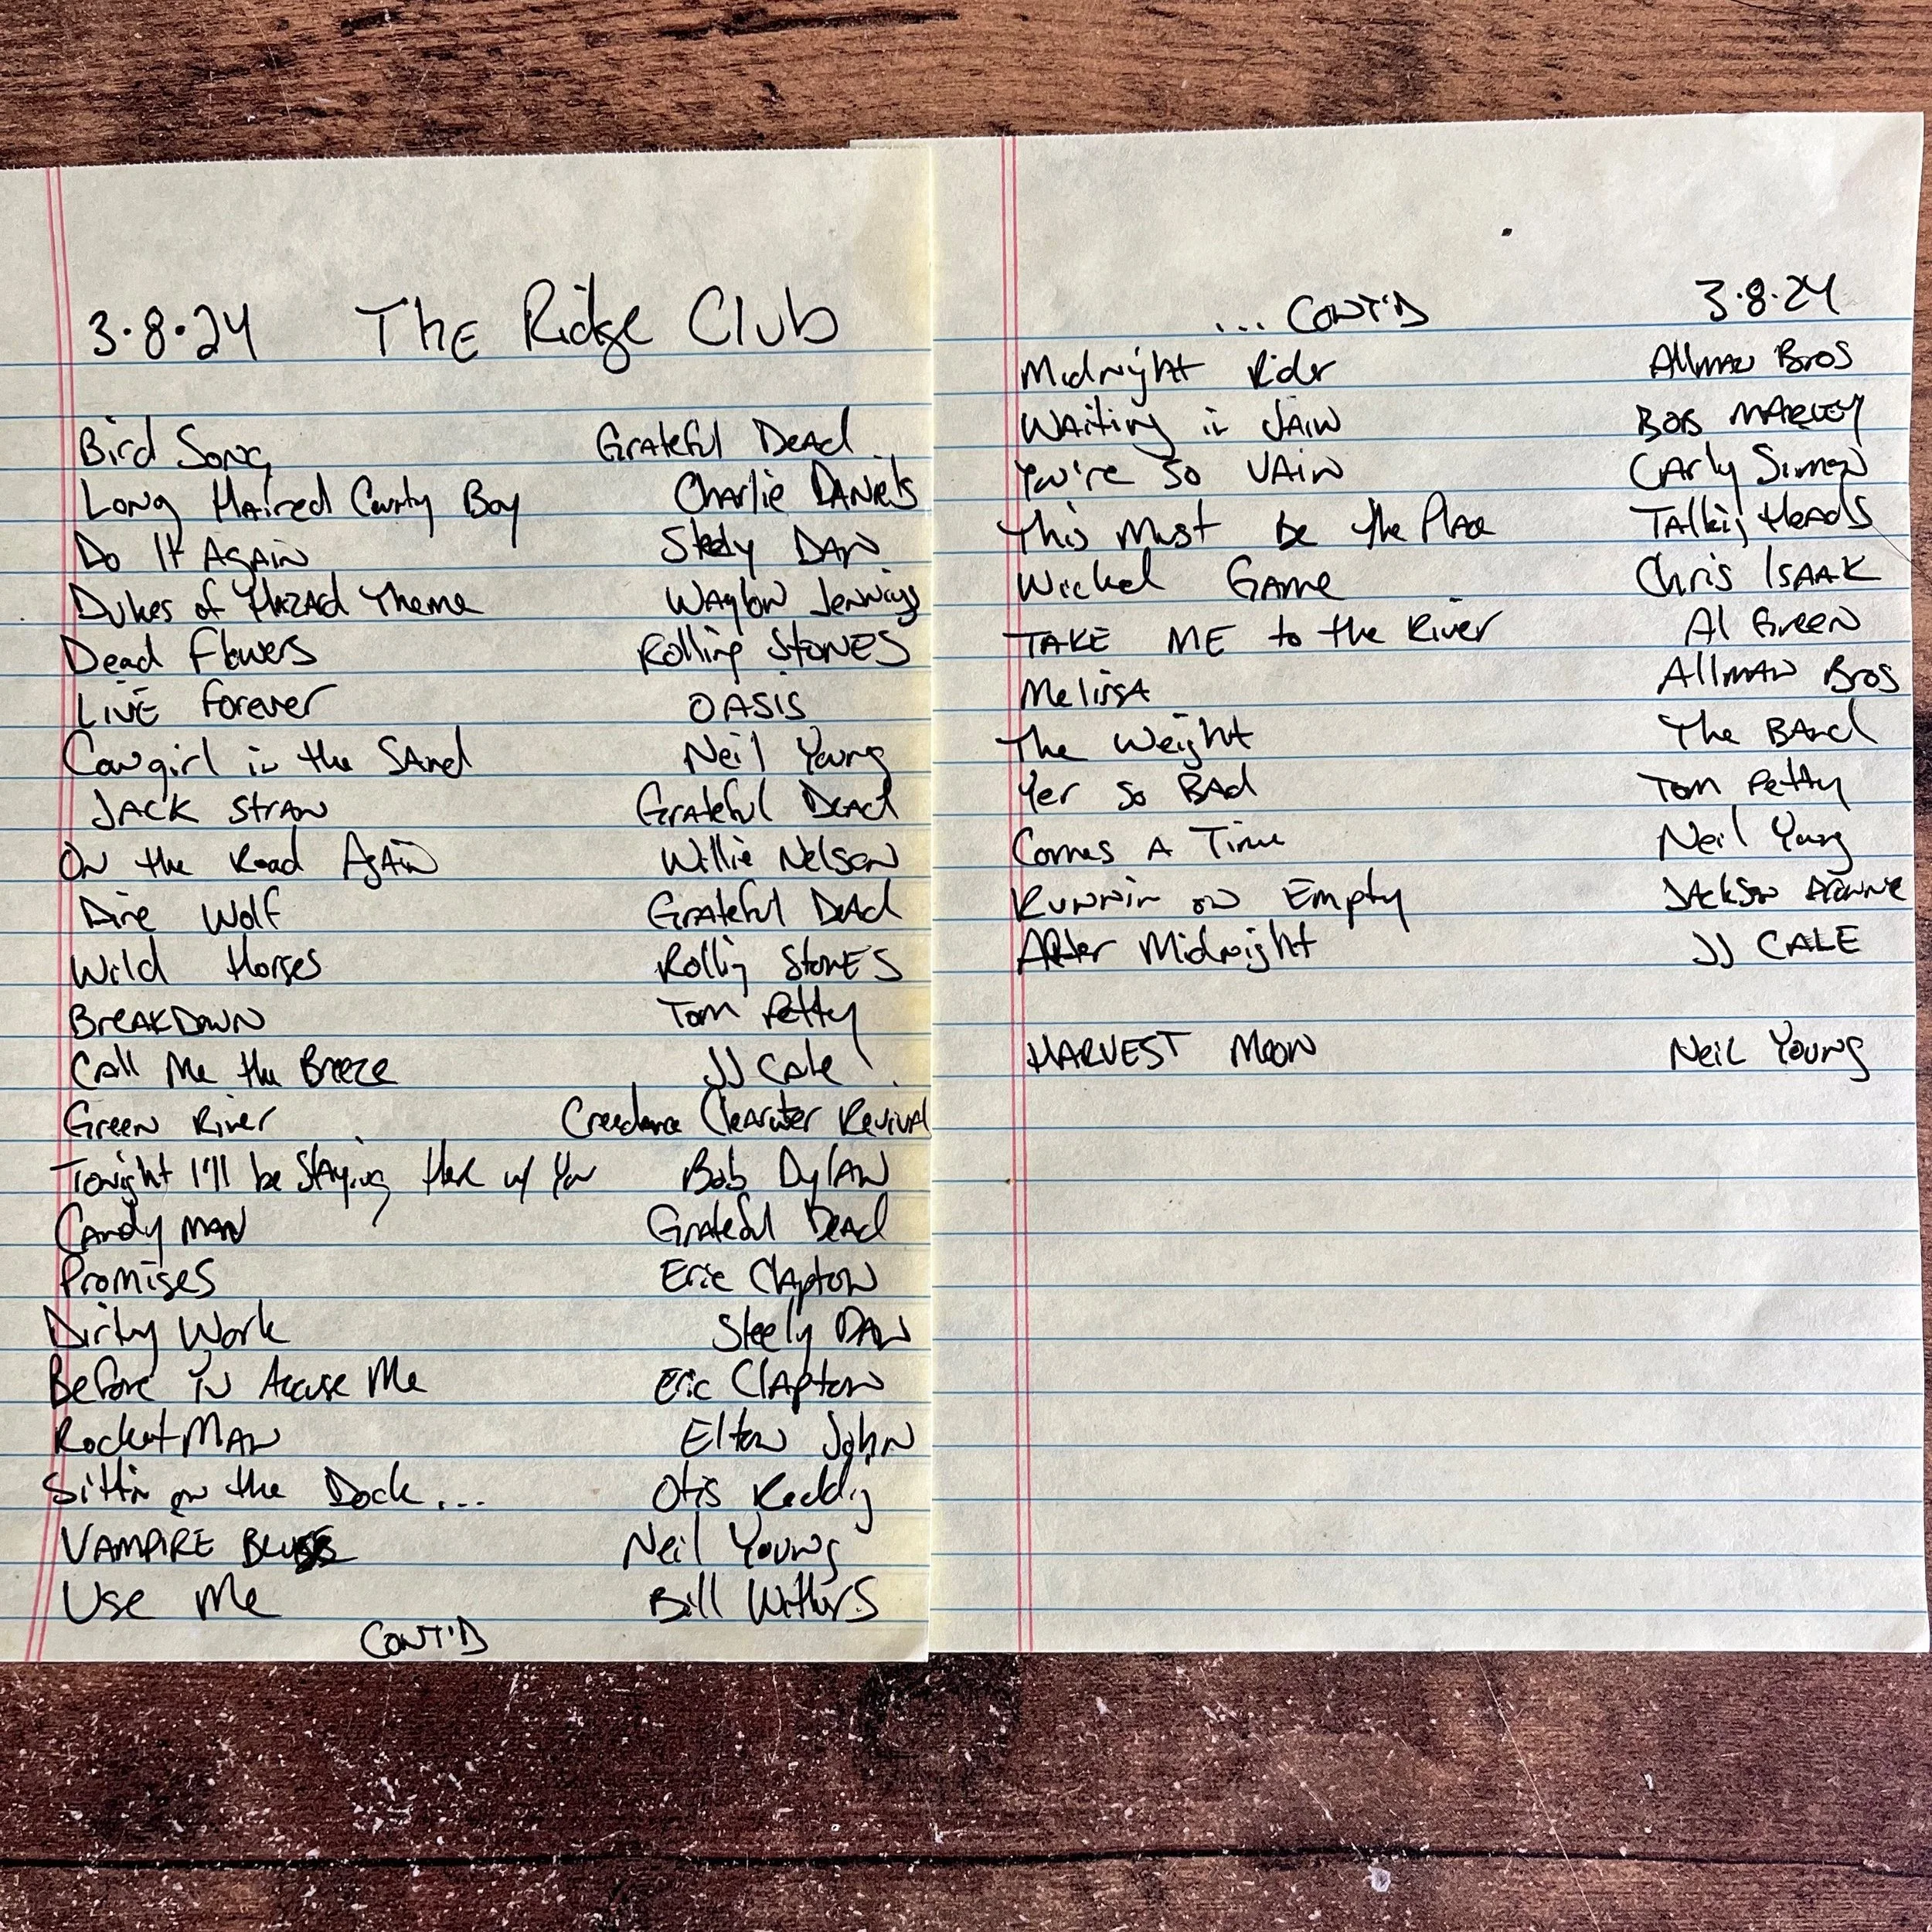 3.8.24 The Ridge Club
Bird Song Grateful Dead
Long Haired Country Boy Charlie Daniels
Do It Again Steely Dan
Dukes of Hazard Theme Waylon Jennings
Dead Flowers Rolling Stones
Live Forever OASIS
Cowgirl in the Sand Neil Young
Jack Straw Grateful Dead
On the Road Again Willie Nelson
Dire Wolf Grateful Dead
Wild Horses Rolling Stones
Breakdown Tom Petty
Call Me the Breeze JJ Cale
Green River Creedence Clearwater Revival
Tonight I'll be Staying Here w/ You Bob Dylan
Candy man Grateful Dead
Promises Eric Clapton
Dirty Work Steely Dan
Before You Accuse Me Eric Clapton
Rocket Man Elton John
Sittin on the Dock... Otis Redding
VAMPIRE BLUES Neil Young
Use Me Bill Withers
CONT'D
... CONT'D 3.8.24
Midnight Rider Allman Bros
Waiting in Vain Bob Marley
You're So Vain Carly Simon
This Must Be the Place Talking Heads
Wicked Game Chris Isaak
TAKE ME to the River Al Green
Melissa Allman Bros
The Weight The Band
Yer So Bad Tom Petty
Comes A Time Neil Young
Runnin on Empty Jackson Browne
After Midnight JJ CALE
HARVEST MOON Neil Young